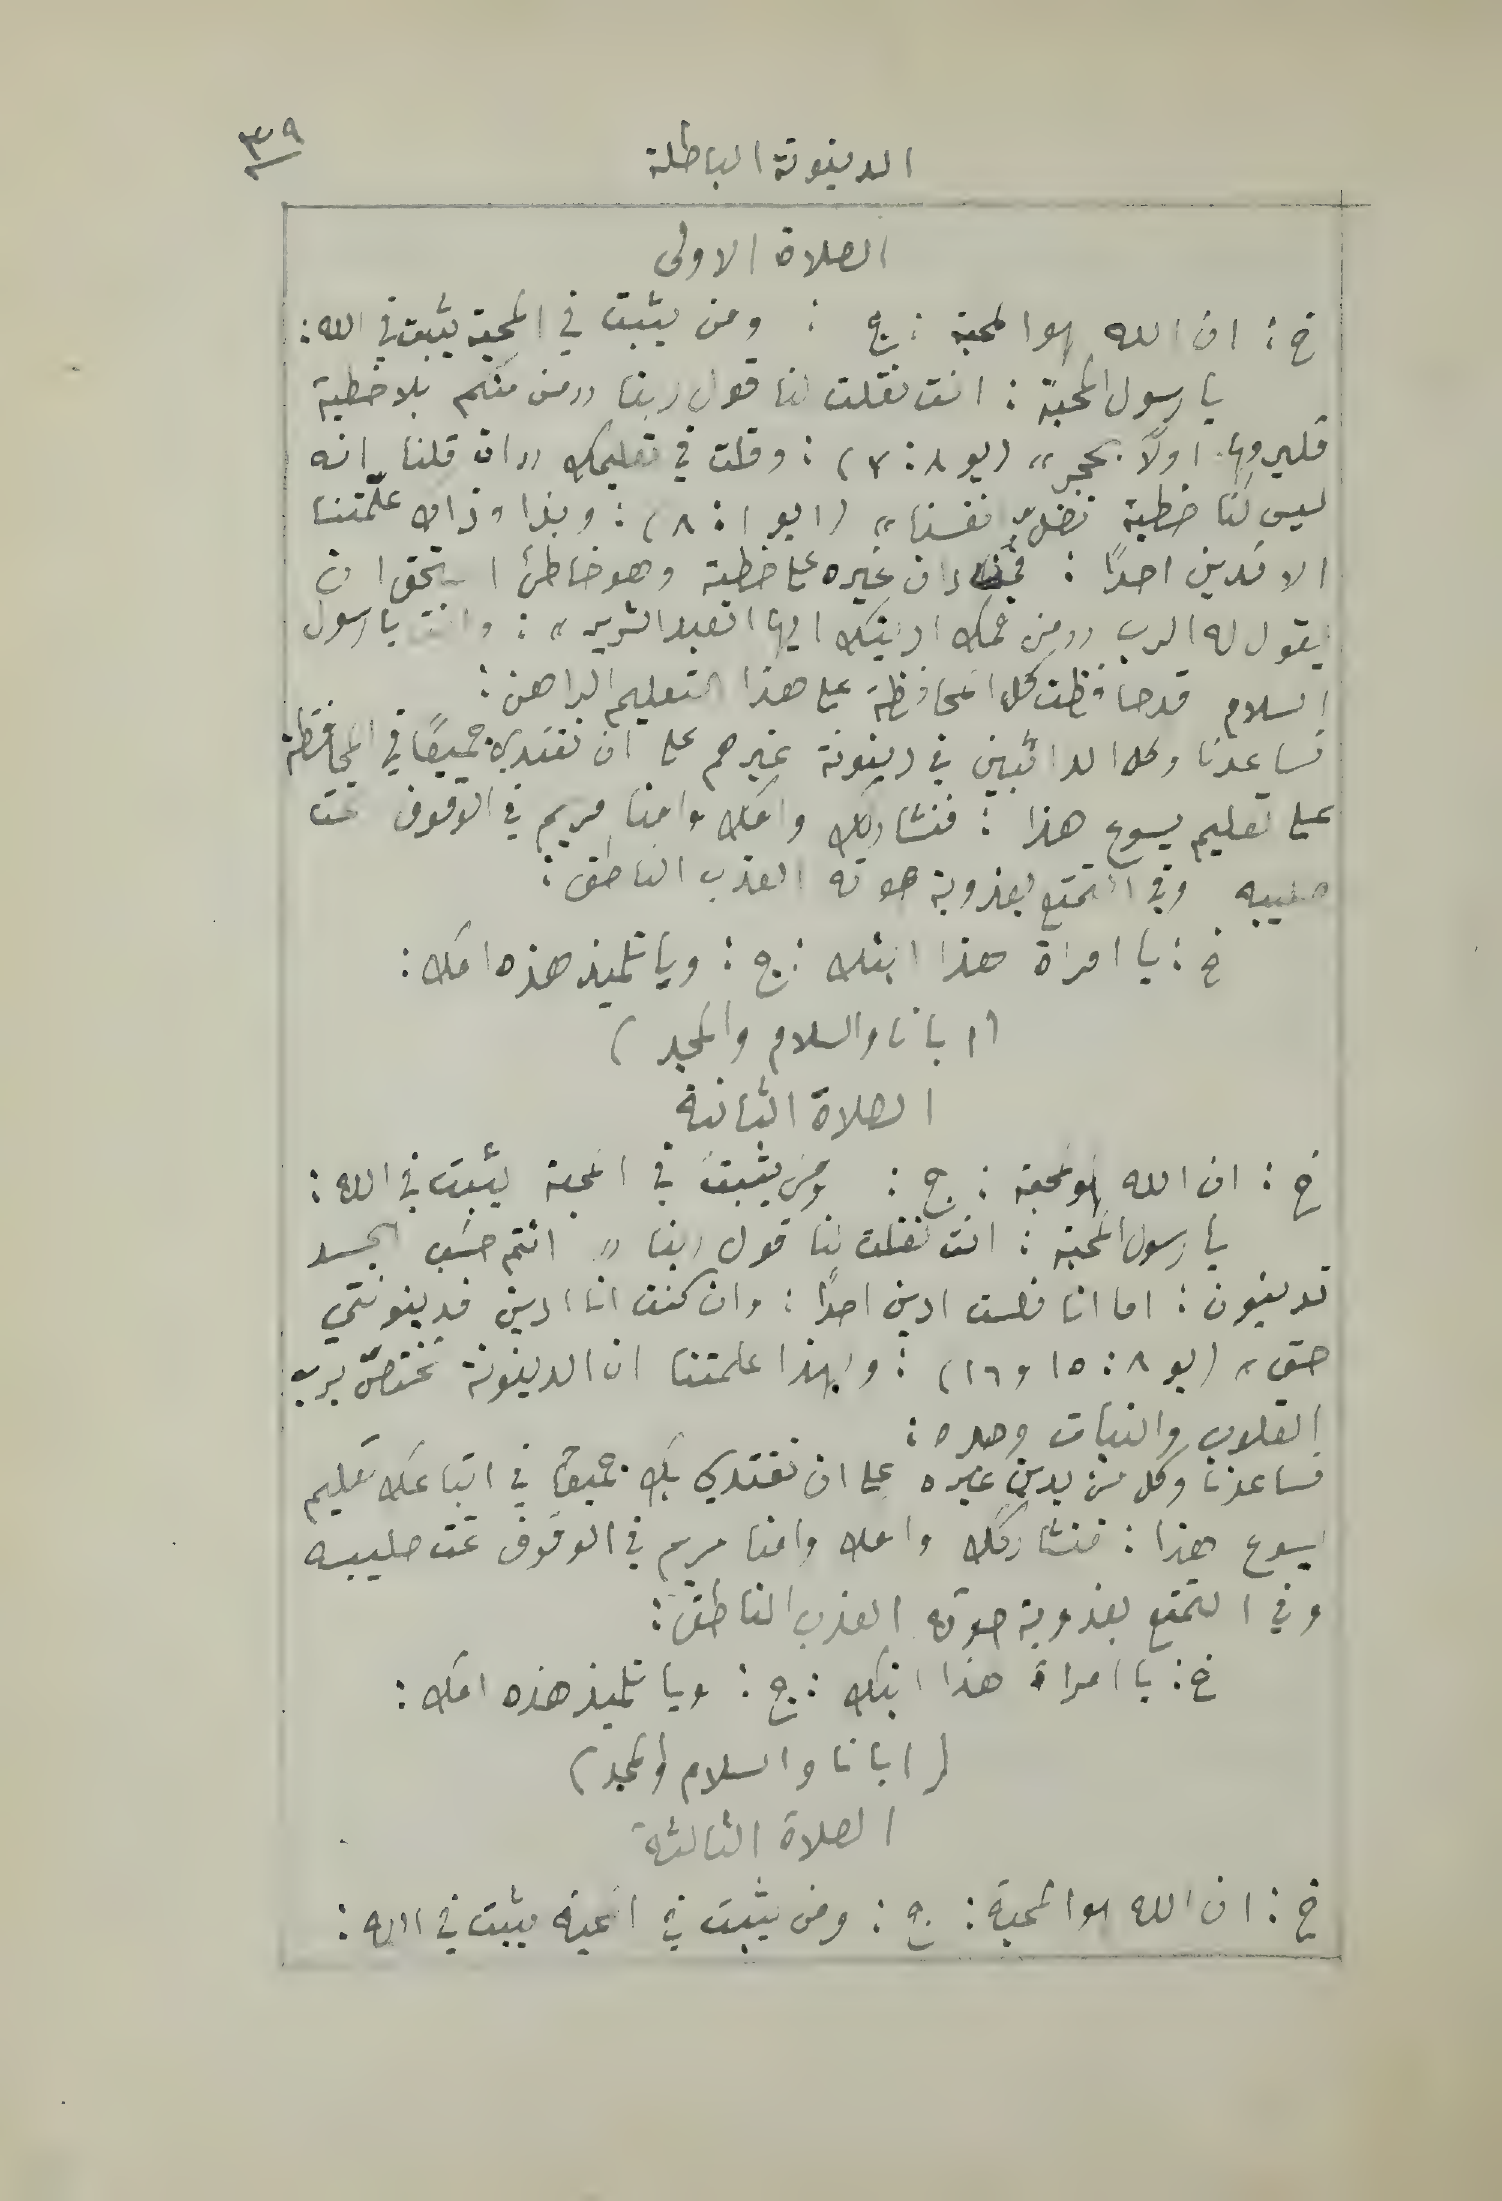 ٣٩
الدينونة الباطلة
الصلاة الاولى
خ : ان الله هو المحبة : ج : ومن يثبت في المحبة يثبت في الله :
يا رسول المحبة : انت نقلت لنا قول ربنا « من منكم بلا خطية
فليرمها اولاً بحجر » (يو ٨ : ٧) : وقلت في تعليمك « ان قلنا انه
ليس لنا خطية نضلّ انفسنا » (١يو ١ : ٨) : وبذا وذاك علّمتنا
الا ندين احدًا : فمن دان غيره على خطية وهو خاطئ استحق ان
يقول له الرب « من فمك ادينك ايها العبد الشرير » : وانت يا رسول
السلام قد حافظت كل المحافظة على هذا التعليم الراهن :
فساعدنا وكل الدائبين في دينونة غيرهم على ان نقتدي جميعًا في المحافظة
على تعليم يسوع هذا : فنشاركك وامك وامنا مريم في الوقوف تحت
صليبه وفي التمتع بعذوبة صوته العذب الناطق :
خ : يا امراة هذا ابنك : ج : ويا تلميذ هذه امك :
(ابانا والسلام والمجد)
الصلاة الثانية
خ : ان الله هو محبة : ج : ومن يثبت في المحبة يثبت في الله :
يا رسول المحبة : انت نقلت لنا قول ربنا « انتم حسب الجسد
تدينون : اما انا فلست ادين احدًا : وان كنت انا ادين فدينونتي
حق » (يو ٨ : ١٥ و ١٦) : وبهذا علمتنا ان الدينونة تختصّ بربّ
القلوب والنيات وحده :
فساعدنا وكل من يدين غيره على ان نقتدي بك جميعًا في اتباعك تعليم
يسوع هذا : فنشاركك وامك وامنا مريم في الوقوف تحت صليبه
وفي التمتع بعذوبة صوته العذب الناطق :
خ : يا امراة هذا ابنك : ج : ويا تلميذ هذه امك :
(ابانا والسلام والمجد)
الصلاة الثالثة
خ : ان الله هو المحبة : ج : ومن يثبت في المحبة يثبت في الله :